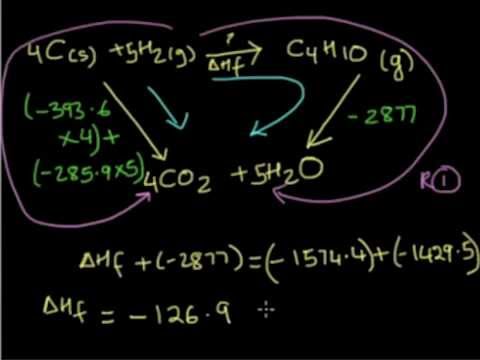 4C(s) + 5H2(g) → C4H10 (g)
?
ΔHf
(-393.6
x4)+
(-285.9x5)
-2877
4CO2 + 5H2O
R①
ΔHf + (-2877) = (-1574.4) + (-1429.5)
ΔHf = -126.9